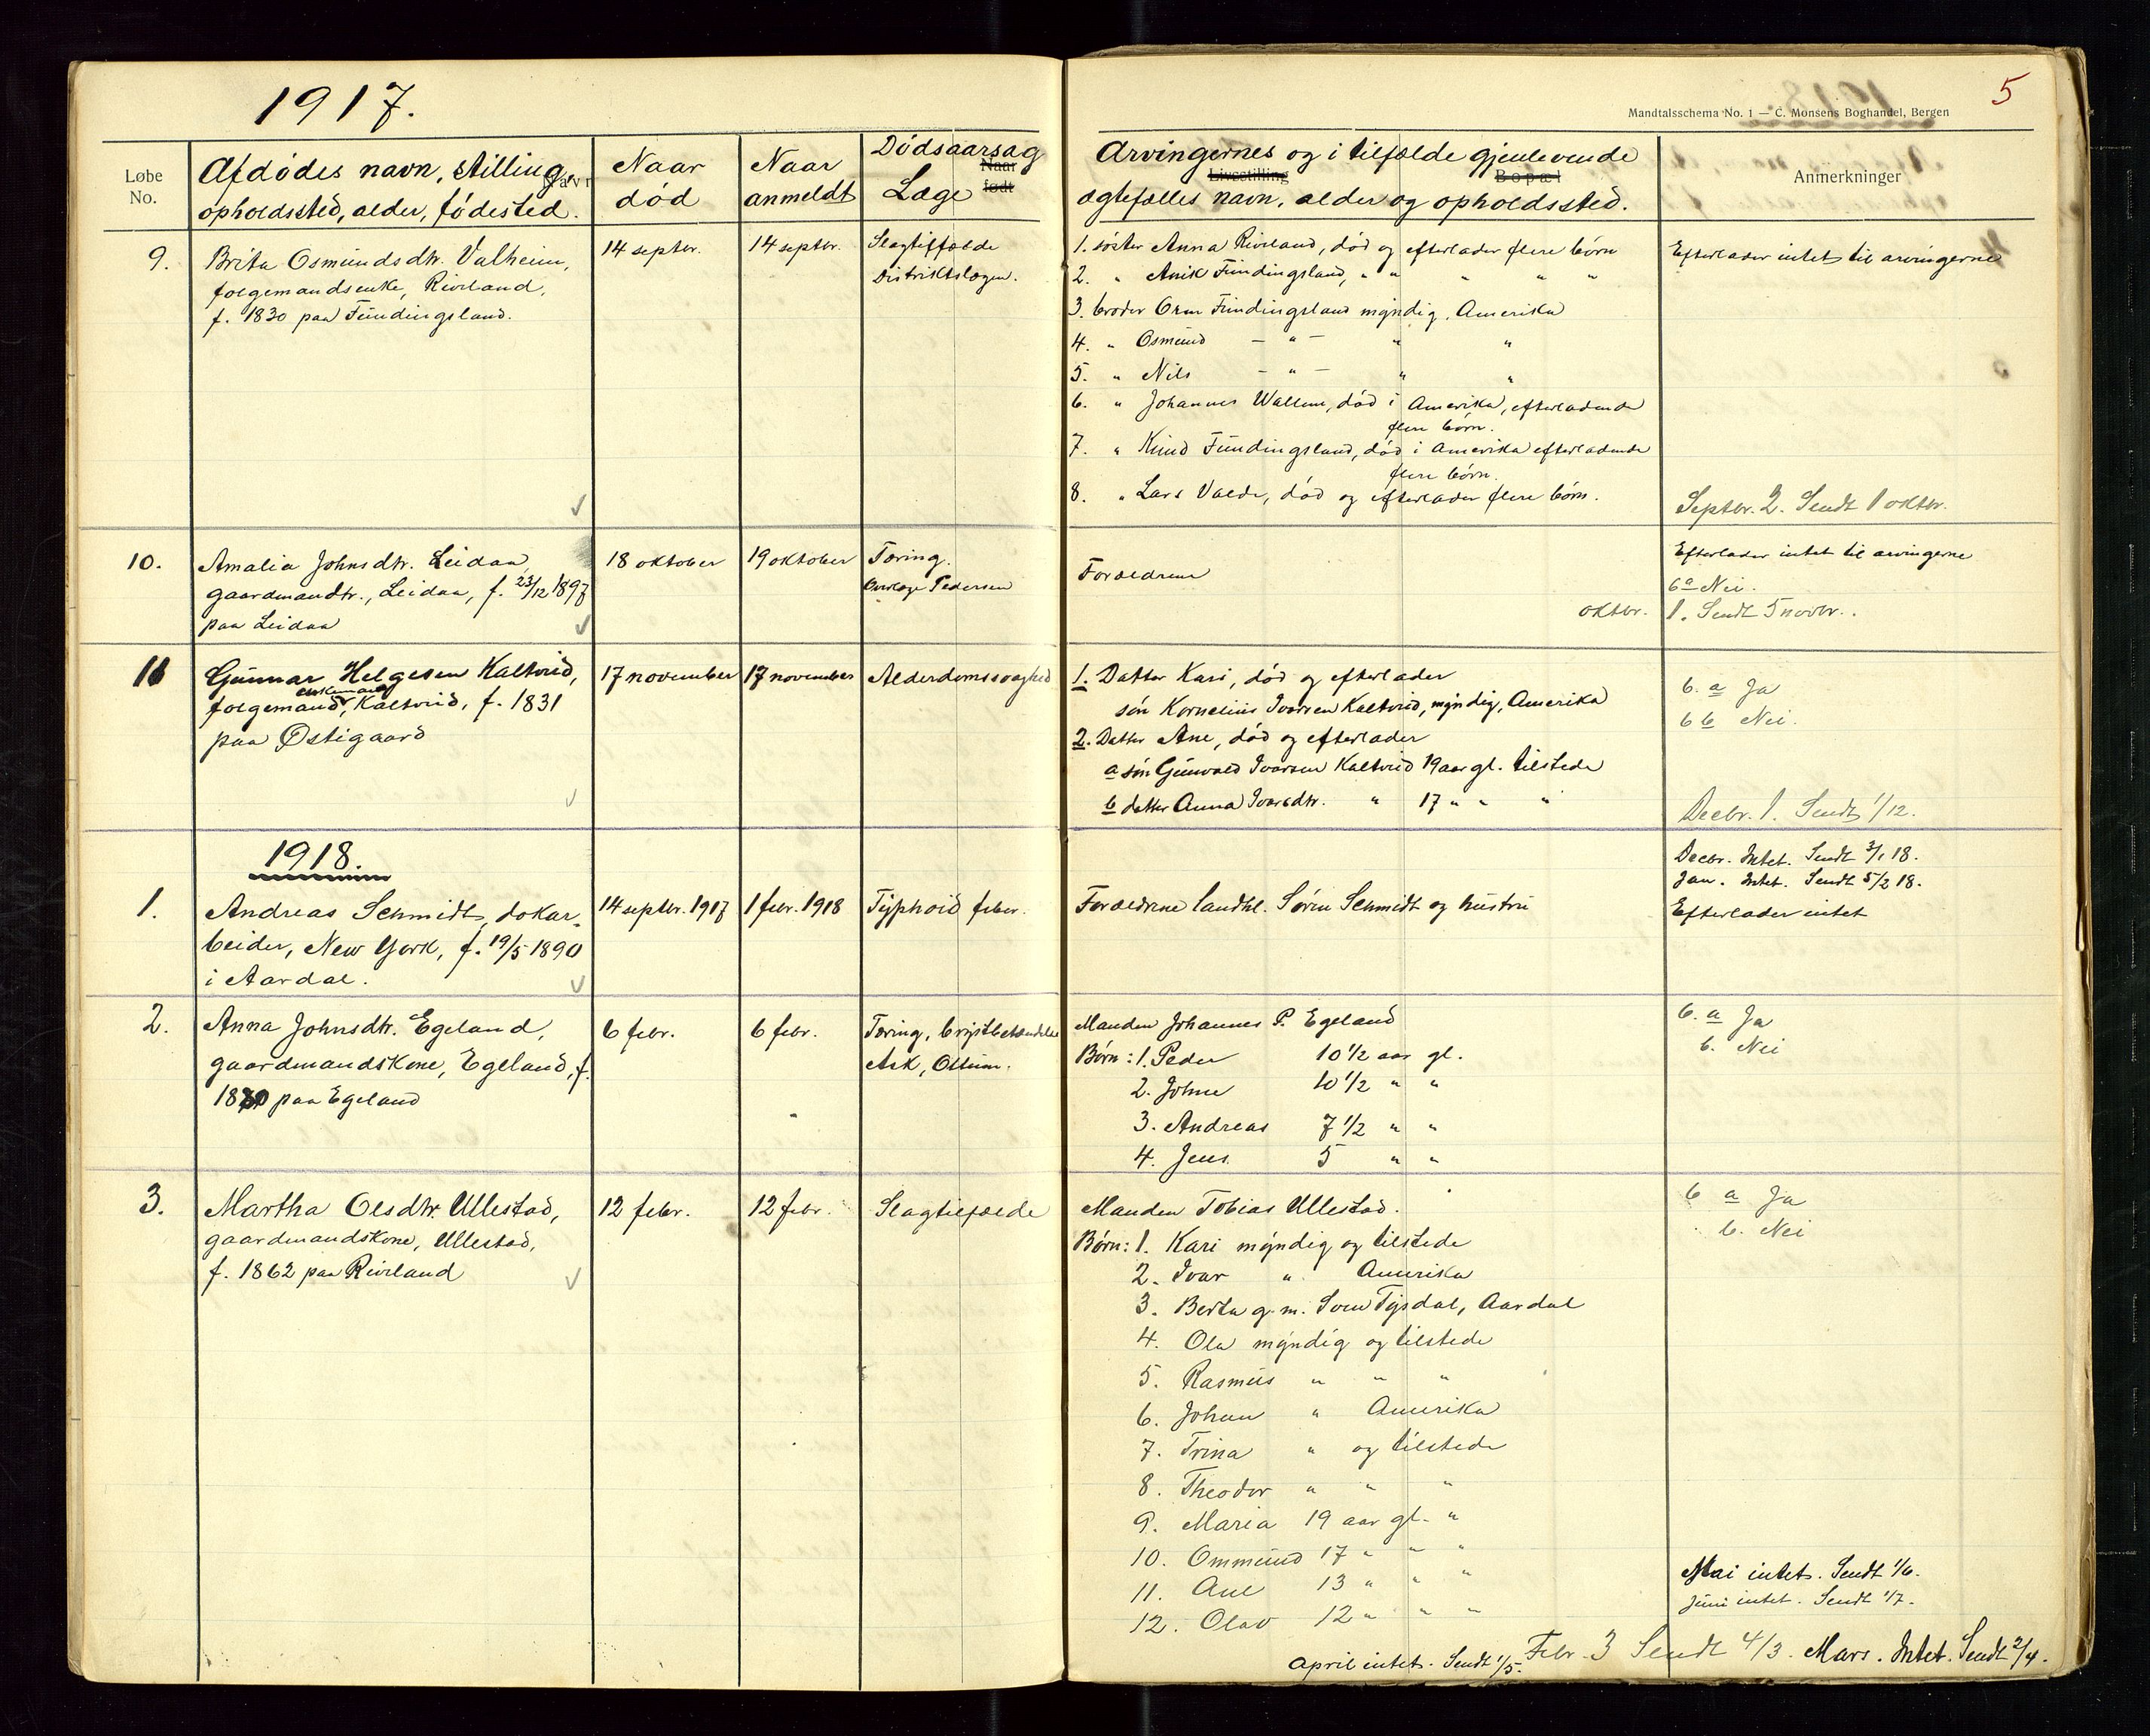 1917.
5
Mandtalsschema No. 1 — C. Monsens Boghandel, Bergen
Løbe No.
Afdødes navn, stilling,
opholdssted, alder, fødested.
Naar
død
Naar
anmeldt
Dødsaarsag
Naar
født
Læge
Arvingernes og i tilfælde gjenlevende
Livsstilling
Bopæl
ægtefælles navn, alder og opholdssted.
Anmerkninger
9.
Brita Osmundsdtr. Valheim,
folgemandsenke, Riveland,
f. 1830 paa Fundingsland.
14 septbr.
14 septbr.
Slagtilfælde
Distriktslægen.
1. søster Anna Riveland, død og efterlader flere børn
2. " Anik Fundingsland, " " " " "
3. broder Orm Fundingsland myndig, Amerika
4. " Osmund — " — " "
5. " Nils — " — " "
6. " Johannes Wallem, død i Amerika, efterladende
flere børn.
7. " Knud Fundingsland, død i Amerika efterladende
flere børn.
8. " Lars Valde, død og efterlader flere børn.
Efterlader intet til arvingerne
Septbr. 2. Sendt 1 oktbr.
10.
Amalia Johnsdtr. Leidaa,
gaardmandtr., Leidaa, f. 23/12 1897
paa Leidaa
18 oktober
19 oktober
Tæring.
Overlæge Pedersen
Forældrene
Efterlader intet til arvingerne
6 a Nei.
oktbr. 1. Sendt 5 novbr.
11
Gunnar Helgesen Kaltvid,
enkemand
folgemand, Kaltvid, f. 1831
paa Østigaard
17 november
17 november
Alderdomssvaghed
1. Datter Kari, død og efterlader
søn Kornelius Ivarsen Kaltvid, myndig, Amerika
2. Datter Ane, død og efterlader
a søn Gunvald Ivarsen Kaltvid 19 aar gl. tilstede
b datter Anna Ivarsdtr. " 17 " " "
6. a Ja
6 b Nei.
Decbr. 1. Sendt 1/12.
1918.
Decbr. Intet. Sendt 3/1 18.
Jan. Intet. Sendt 5/2 18.
1.
Andreas Schmidt, dokar-
beider, New York, f. 19/5 1890
i Aardal.
14 septbr. 1917
1 febr. 1918
Typhoid feber.
Forældrene landhl. Søren Schmidt og hustru
Efterlader intet
2.
Anna Johnsdtr. Egeland,
gaardmandskone, Egeland, f.
1880 paa Egeland
6 febr.
6 febr.
Tæring, brystbetændelse
Ask, Ottum.
Manden Johannes P. Egeland
Børn: 1. Peder 10 1/2 aar gl.
2. Johne 10 1/2 " "
3. Andreas 7 1/2 " "
4. Jens 5 " "
6. a Ja
b. Nei
3.
Martha Olsdtr. Ullestad,
gaardmandskone, Ullestad,
f. 1862 paa Riveland
12 febr.
12 febr.
Slagtilfælde
Manden Tobias Ullestad.
Børn: 1. Kari myndig og tilstede
2. Ivar " Amerika
3. Berta g. m. Sven Tysdal, Aardal
4. Ola myndig og tilstede
5. Rasmus " " "
6. Johan " Amerika
7. Trina " og tilstede
8. Theodor " " "
9. Maria 19 aar gl. "
10. Ommund 17 " " "
11. Ane 13 " " "
12. Olav 12 " " "
6 a Ja
b. Nei
Mai intet. Sendt 1/6.
Juni intet. Sendt 1/7.
April intet. Sendt 1/5. Febr. 3 Sendt 4/3. Mars. Intet. Sendt 2/4.